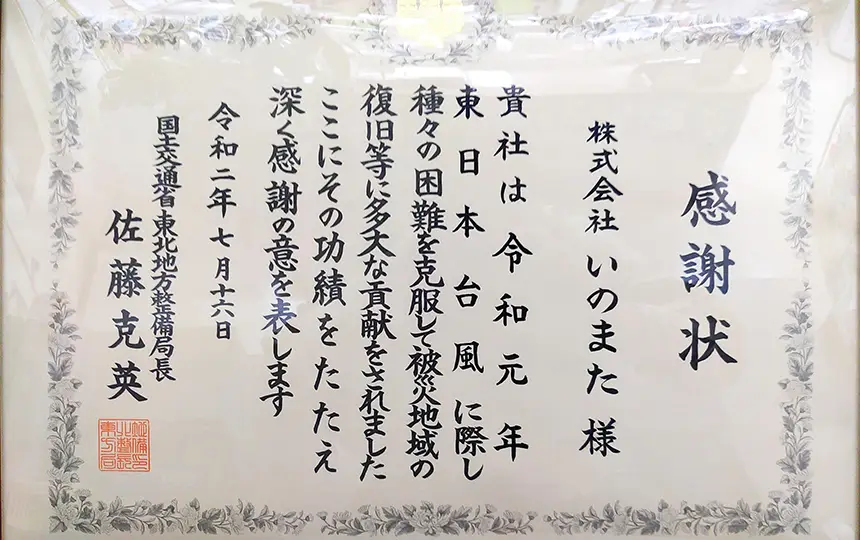 感謝状
株式会社 いのまた 様
貴社は令和元年
東日本台風に際し
種々の困難を克服して被災地域の
復旧等に多大な貢献をされました
ここにその功績をたたえ
深く感謝の意を表します
令和二年七月十六日
国土交通省 東北地方整備局長
佐藤克英